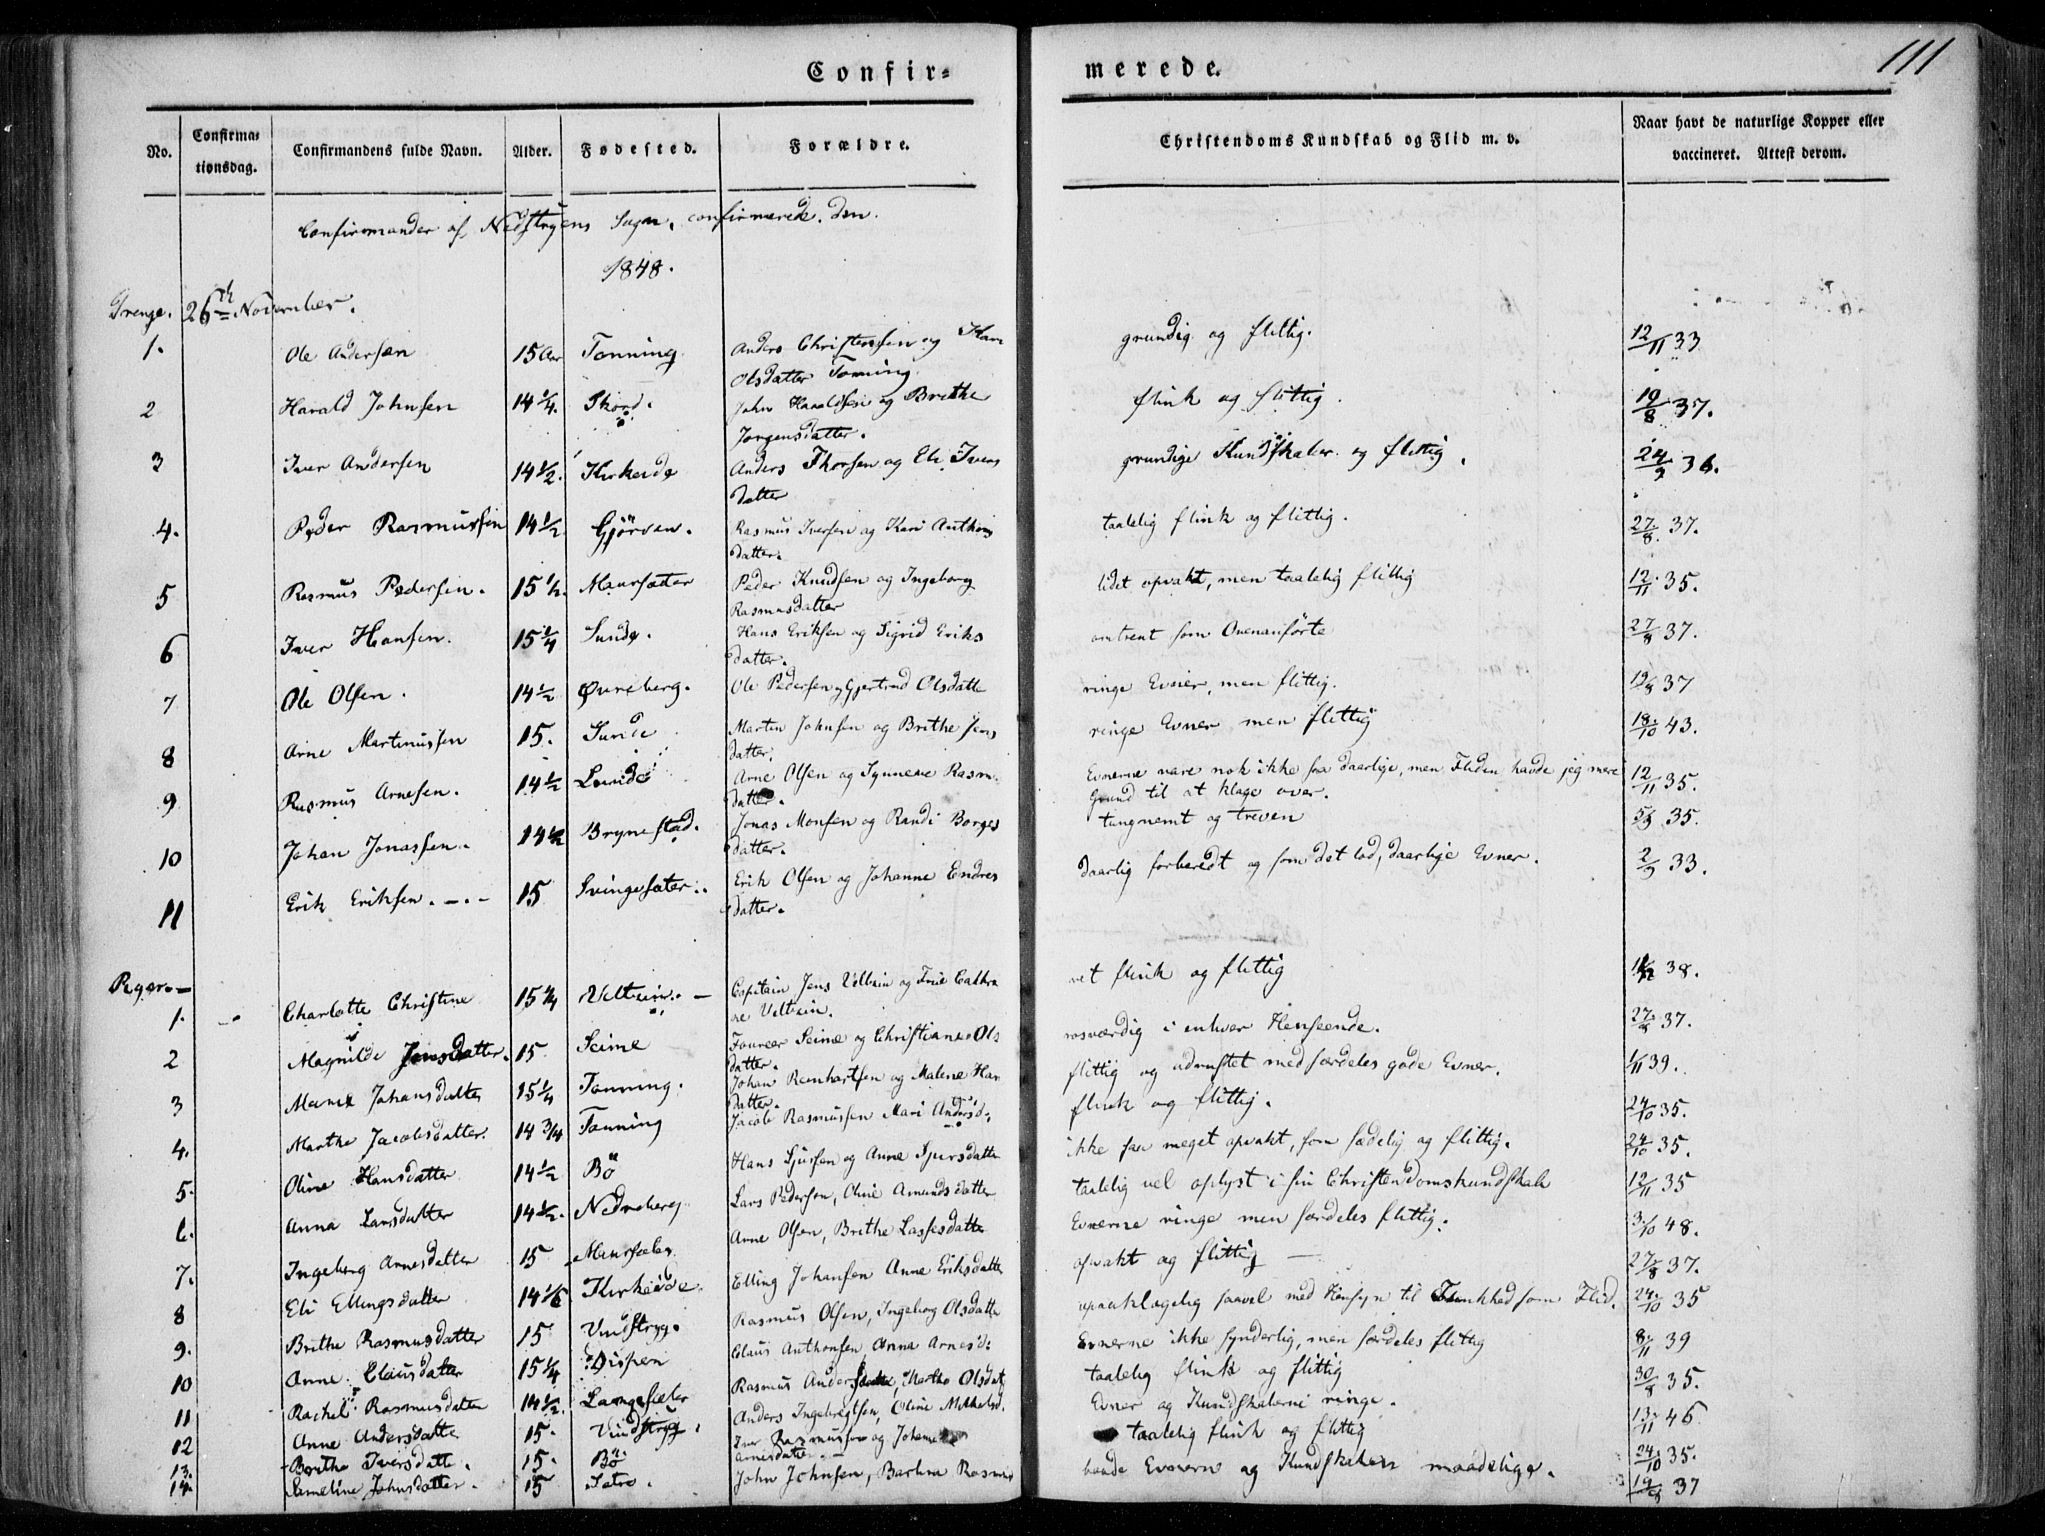 111
Confir-
merede.
No.
Confirma-
tionsdag.
Confirmandens fulde Navn.
Alder.
Fødested.
Forældre.
Christendoms Kundskab og Flid m. v.
Naar havt de naturlige Kopper eller
vaccineret. Attest derom.
Confirmander af Nedstryens Sogn, confirmerede den
1848.
Drenge. 26th November.
1. Ole Andersen 15 Aar Tonning Anders Christensen og Kari grundig og flittig. 12/11 33
Olsdatter Tonning
2 Harald Johnsen 14 1/4. Skord. John Haraldsen og Brithe flink og flittig 19/8 37.
Jorgensdatter.
3 Iver Andersen 14 1/2. Kirkeide Anders Thorsen og Eli Ivers grundige Kundskaber og flittig. 24/9 36.
datter
4. Peder Rasmussen 14 1/2 Gjörven. Rasmus Iversen og Kari Anthons taalelig flink og flittig. 27/8. 37.
datter.
5 Rasmus Pedersen. 15 1/2. Maursæter Peder Knudsen og Ingeborg lidet opvakt, men taalelig flittig 12/11. 35.
Rasmusdatter
6 Iver Hansen. 15 1/4 Sunde. Hans Eriksen og Sigrid Eriks omtrent som Ovenanförte 27/8 37.
datter.
7 Ole Olsen. 14 1/2 Øvreberg. Ole Pedersen og Gjertrud Olsdatte ringe Evner, men flittig. 19/8 37
8 Arne Martinussen 15. Sunde Martin Johnsen og Brithe Jens ringe Evner men flittig 18/10 43.
datter.
9 Rasmus Arnesen. 14 1/2 Lunde Arne Olsen og Synneve Rasm. Evnerne vare nok ikke saa daarlige, men Fliden havde jeg mere 12/11 35.
datter. Grund til at klage over.
10 Johan Jonassen. 14 1/2 Brynestad. Jonas Monsen og Randi Borges tungnemt og treven 5/9 35.
datter.
11 Erik Eriksen. 15 Svingesæter. Erik Olsen og Johanne Endres daarlig forberedt og som det lod, daarlige Evner. 2/9 33.
datter.
Piger.
1. Charlotte Christine 15 3/4 Veltsin. Capitain Jens Veltsin og Frue Cathri vet flink og flittig 38.
ne Veltsin.
2 Magnilde Jensdatter. 15 Seime Foureer Seime og Christiane Ols rosværdig i enhver Henseende. 27/8 37.
datter.
3 Johansdatter 15 1/4 Tonning. Johan Renhartsen og Malene Han flittig og udrustet med særdeles gode Evner. 1/11 39.
datter.
4. Marthe Jacobsdatter. 14 3/4 Tonning Jacob Rasmussen Mari Andersd: flink og flittig. 24/10 35.
5. Oline Hansdatter 14 1/2 Bö Hans Sjursen og Anne Sjursdatte ikke saa meget opvakt, som sædelig og flittig. 24/10 35.
6. Anna Larsdatter 14 1/2. Nedreberg Lars Pedersen, Oline Amundsdatter taalelig vel oplyst i sin Christendomskundskab 12/11 35
7. Ingeborg Arnesdatter 15 Maursæter Arne Olsen, Brithe Lassesdatte Evnerne ringe men særdeles flittig. 3/10 48.
8 Eli Ellingsdatter 14 1/6 Kirkeide. Elling Johansen Anne Eriksdatte opvakt og flittig 27/8 37.
9. Brithe Rasmusdatter 15 Vindstryg. Rasmus Olsen, Ingeborg Olsdatte upaaklagelig saavel med Hensyn til Flinkhed som Flid. 24/10 35
10 Anne Clausdatter 15 1/4 Dispen Claus Anthonsen, Anna Arnesd: Evnerne ikke synderlig, men særdeles flittig 8/11 39
11 Rachel Rasmusdatter 14 1/2. Langesæter Rasmus Andersen, Marthe Olsdat taalelig flink og flittig 30/8 35.
12 Anne Andersdatte 15. Vindstryg. Anders Ingebregtsen, Oline Mikkelsd. Evner og Kundskaberne ringe. 13/11 46
13. Brithe Iversdatte. 15. Bö Iver Rasmussen og Johanne taalelig flink og flittig 24/10 35.
Arnesdatte
14. Jameline Johnsdatter. 15 Sætre. John Johnsen, Barbra Rasmus baade Evnern og Kundskaben maadelige. 19/8 37